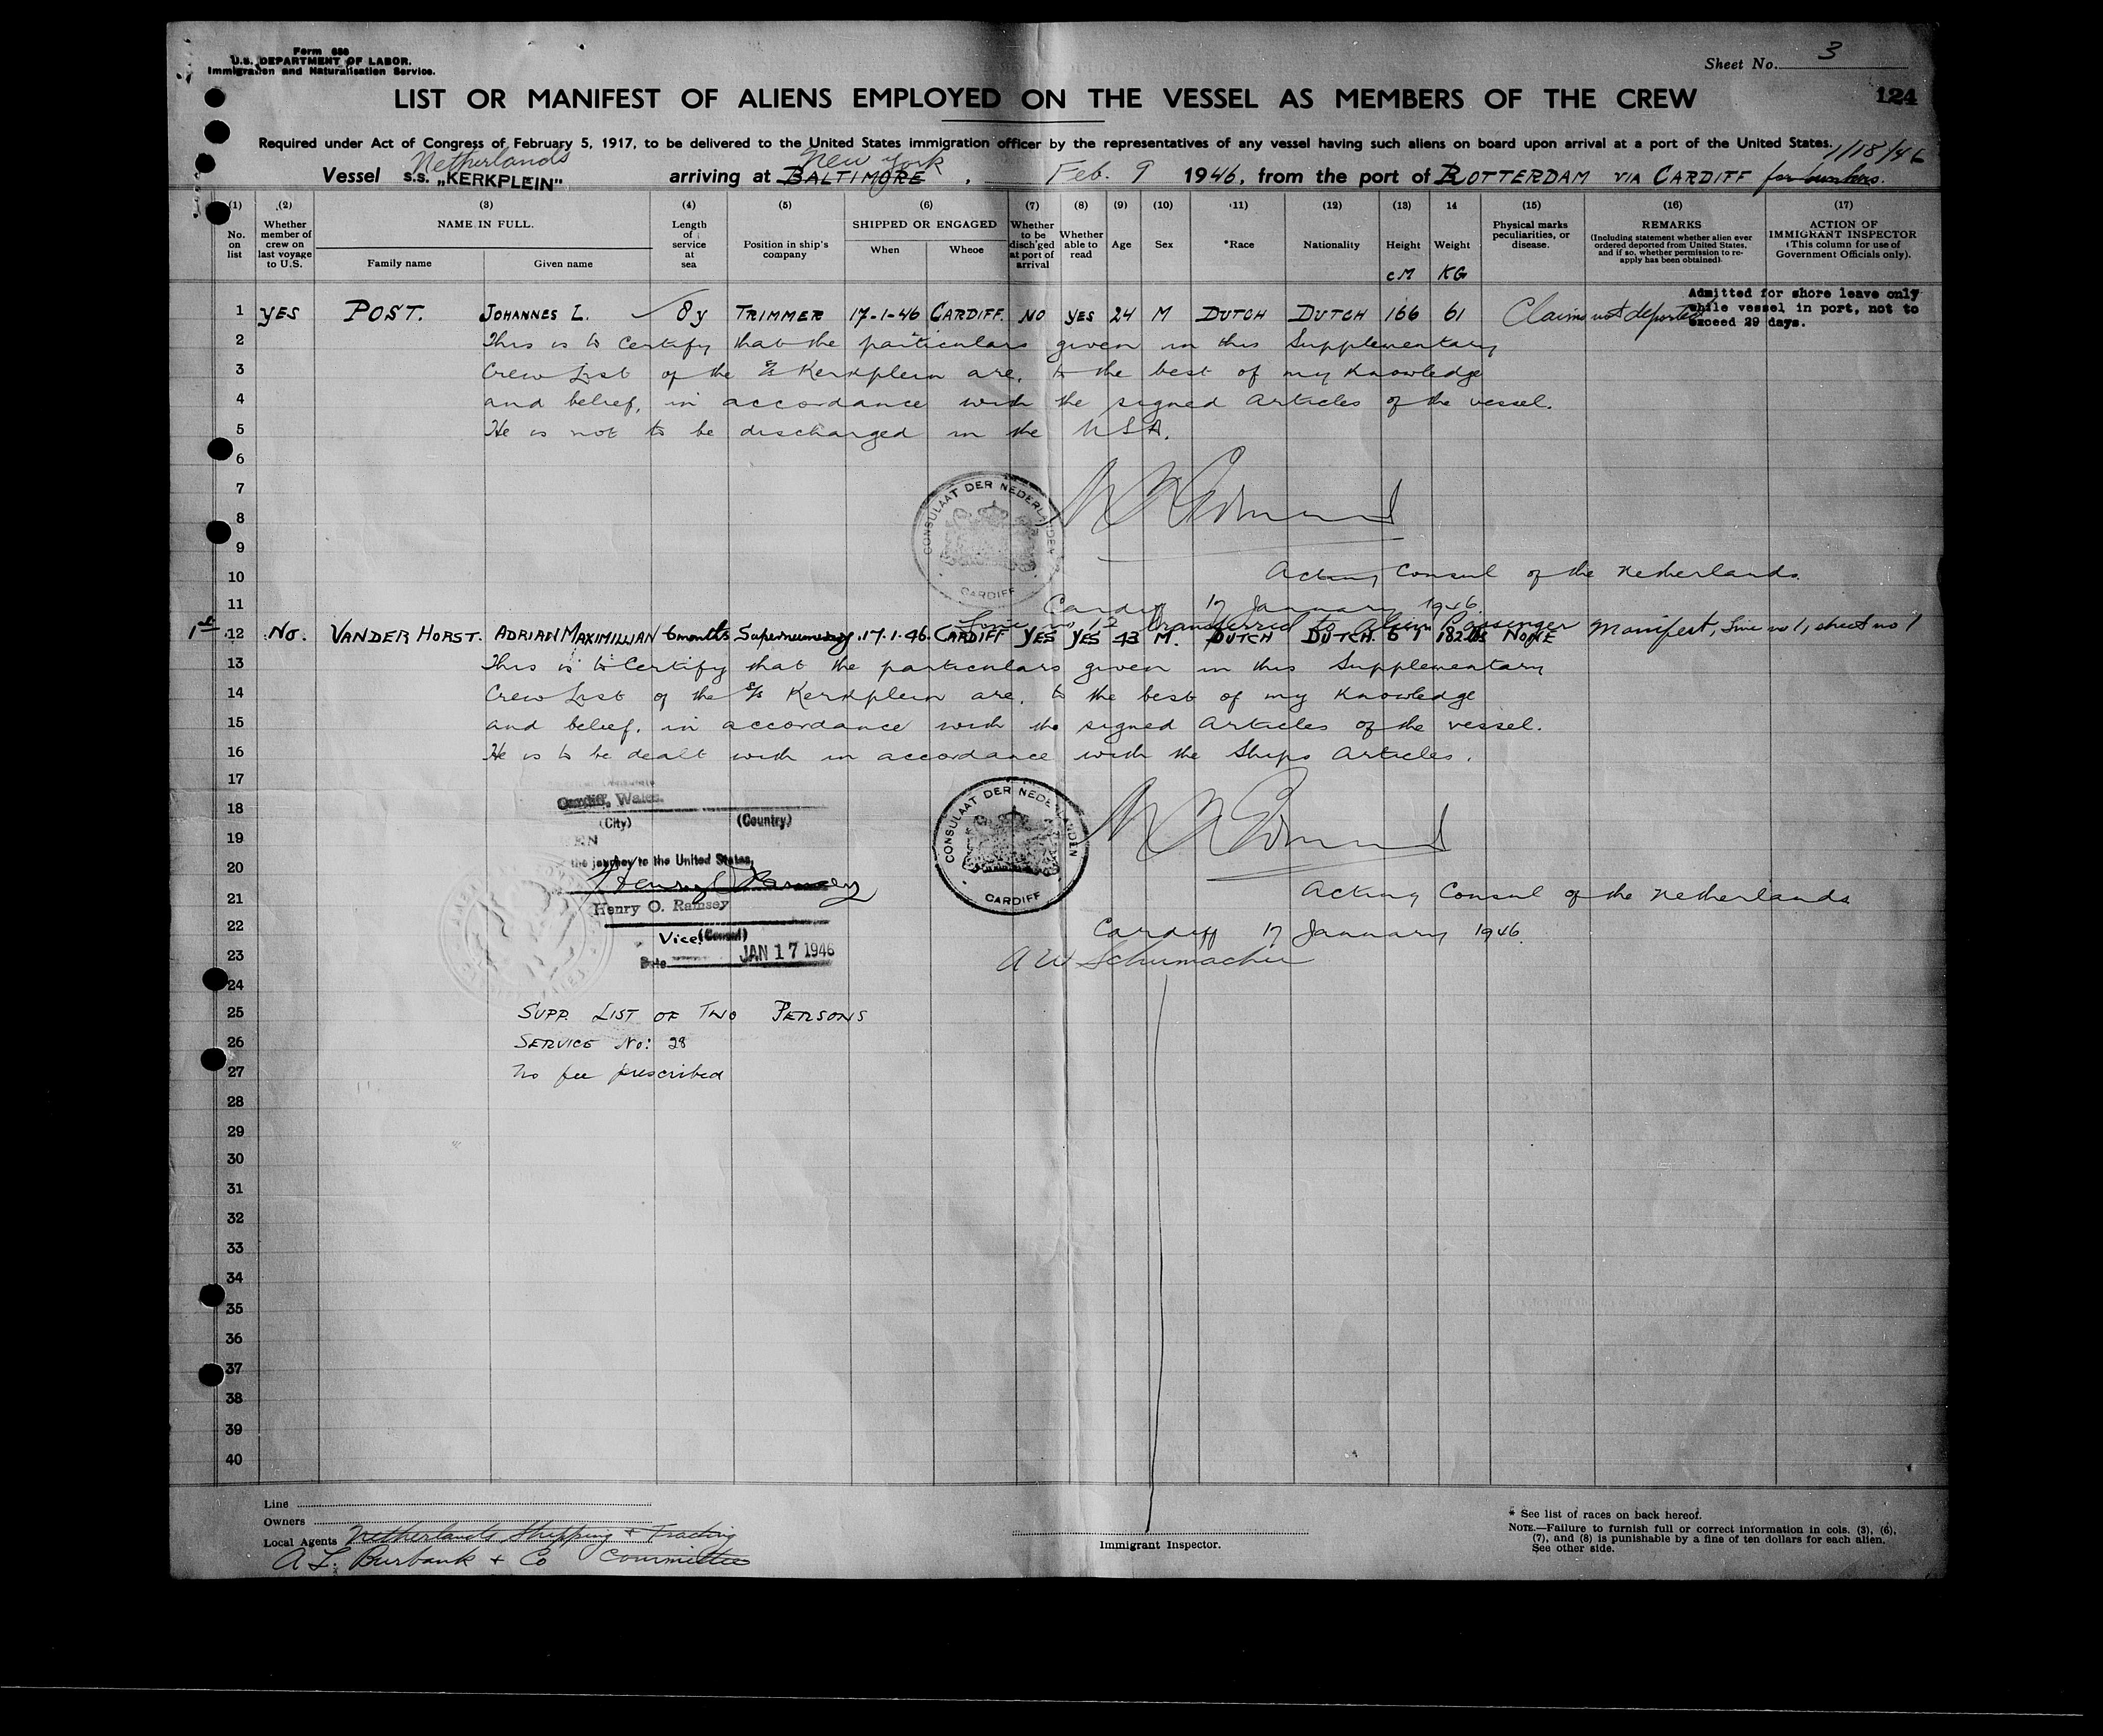 Form 680
U.S. DEPARTMENT OF LABOR.
Immigration and Naturalisation Service.
Sheet No. 3
LIST OR MANIFEST OF ALIENS EMPLOYED ON THE VESSEL AS MEMBERS OF THE CREW
124
Required under Act of Congress of February 5, 1917, to be delivered to the United States immigration officer by the representatives of any vessel having such aliens on board upon arrival at a port of the United States.
Netherlands New York 1/18/46
Vessel s.s. „KERKPLEIN" arriving at BALTIMORE, Feb. 9 1946, from the port of ROTTERDAM VIA CARDIFF for bunkers.
(1) (2) (3) (4) (5) (6) (7) (8) (9) (10) (11) (12) (13) 14 (15) (16) (17)
No. on list
Whether member of crew on last voyage to U.S.
NAME IN FULL.
Family name
Given name
Length of service at sea
Position in ship's company
SHIPPED OR ENGAGED
When
Wheoe
Whether to be disch'ged at port of arrival
Whether able to read
Age
Sex
*Race
Nationality
Height
cM
Weight
KG
Physical marks peculiarities, or disease.
REMARKS
(Including statement whether alien ever ordered deported from United States, and if so, whether permission to re-apply has been obtained)
ACTION OF IMMIGRANT INSPECTOR
(This column for use of Government Officials only).
Admitted for shore leave only
while vessel in port, not to
exceed 29 days.
1 YES POST. JOHANNES L. 8 y TRIMMER 17-1-46 CARDIFF. NO YES 24 M DUTCH DUTCH 166 61 Claims not deported
2 This is to certify that the particulars given in this Supplementary
3 Crew List of the s/s Kerkplein are, to the best of my knowledge
4 and belief, in accordance with the signed articles of the vessel.
5 He is not to be discharged in the USA.
6
7
8
9
CONSULAAT DER NEDERLANDEN
CARDIFF
10 Acting Consul of the Netherlands.
11 Cardiff 17 January 1946.
Line no 12 transferred to Alien Passenger Manifest, Line no 1, sheet no 1
1st 12 No. VANDER HORST. ADRIAN MAXIMILLIAN 6 months Supernumerary. 17.1.46. CARDIFF YES YES 43 M. DUTCH DUTCH. 6 1 182 lbs NONE
13 This is to Certify that the particulars given in this Supplementary
14 Crew List of the s/s Kerkplein are, to the best of my knowledge
15 and belief, in accordance with the signed articles of the vessel.
16 He is to be dealt with in accordance with the Ships Articles.
17
Cardiff, Wales.
18
(City) (Country)
19
20
the journey to the United States,
Henry O Ramsey
CONSULAAT DER NEDERLANDEN
CARDIFF
21 Acting Consul of the Netherlands
Henry O. Ramsey
22 Cardiff 17 January 1946.
Vice (Consul)
23 A W Schumacher
Date JAN 17 1946
24
25 SUPP. LIST OF TWO PERSONS
26 SERVICE No: 28
27 No fee prescribed
28
29
30
31
32
33
34
35
36
37
38
39
40
Line
Owners
Local Agents Netherlands Shipping & Trading
A L. Burbank & Co Committee
Immigrant Inspector.
* See list of races on back hereof.
NOTE.—Failure to furnish full or correct information in cols. (3), (6),
(7), and (8) is punishable by a fine of ten dollars for each alien.
See other side.